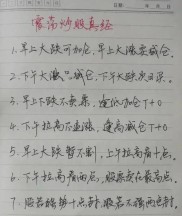 震荡炒股真经
1.早上大跌可加仓，早上大涨要减仓。
2.下午大涨只减仓，下午大跌次日买。
3.早上下跌不卖票，逢低加仓T+0
4.下午拉高不追涨，逢高减仓T+0.
5.早上大跌暂不割，上午拉高再十点。
6.下午拉高看两点，股票卖在最高点。
7.